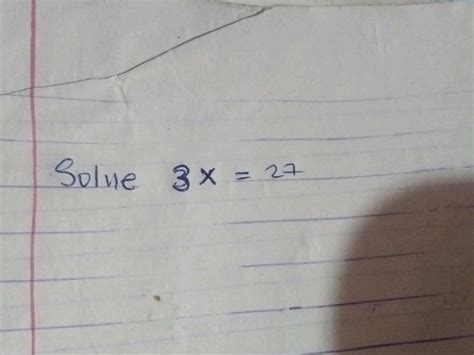 Solve 3x = 27